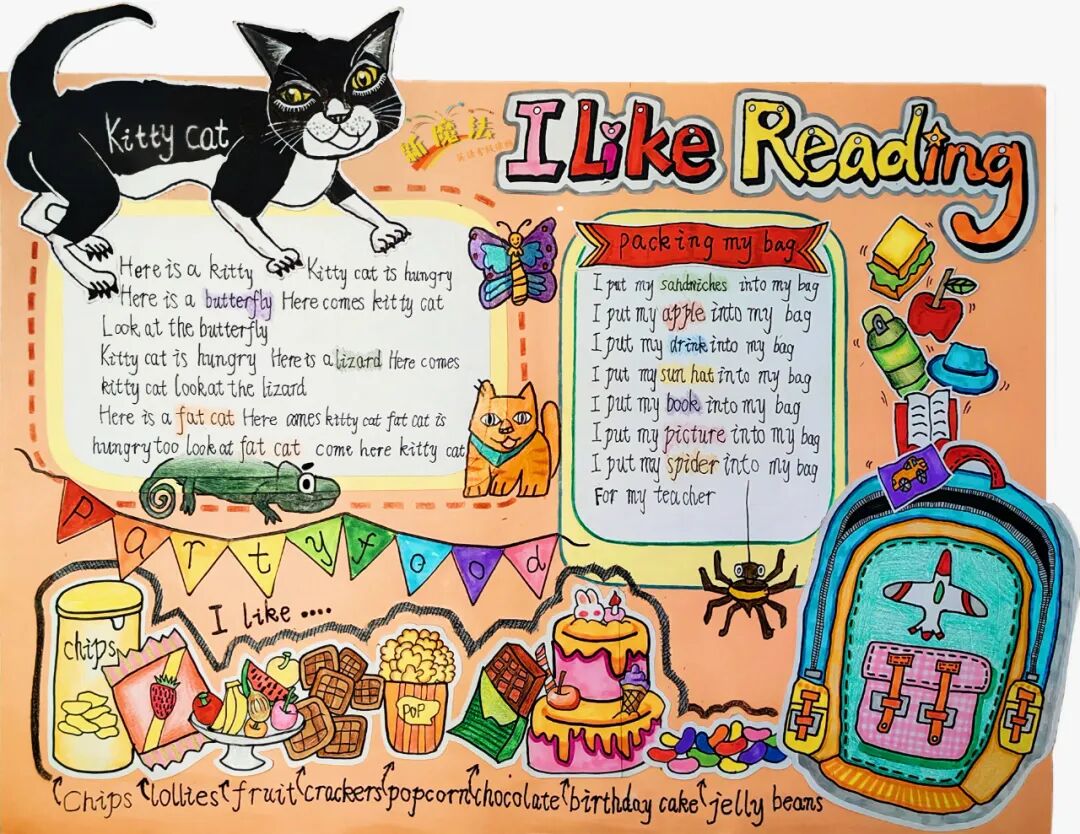 Kitty cat
新魔法
I Like Reading
Here is a kitty Kitty cat is hungry
Here is a butterfly Here comes kitty cat
Look at the butterfly
Kitty cat is hungry Here is a lizard Here comes
kitty cat look at the lizard
Here is a fat cat Here comes kitty cat fat cat is
hungry too look at fat cat come here kitty cat
packing my bag
I put my sandwiches into my bag
I put my apple into my bag
I put my drink into my bag
I put my sun hat into my bag
I put my book into my bag
I put my picture into my bag
I put my spider into my bag
For my teacher
Party food
I like ....
chips
POP
Chips lollies fruit crackers popcorn chocolate birthday cake jelly beans